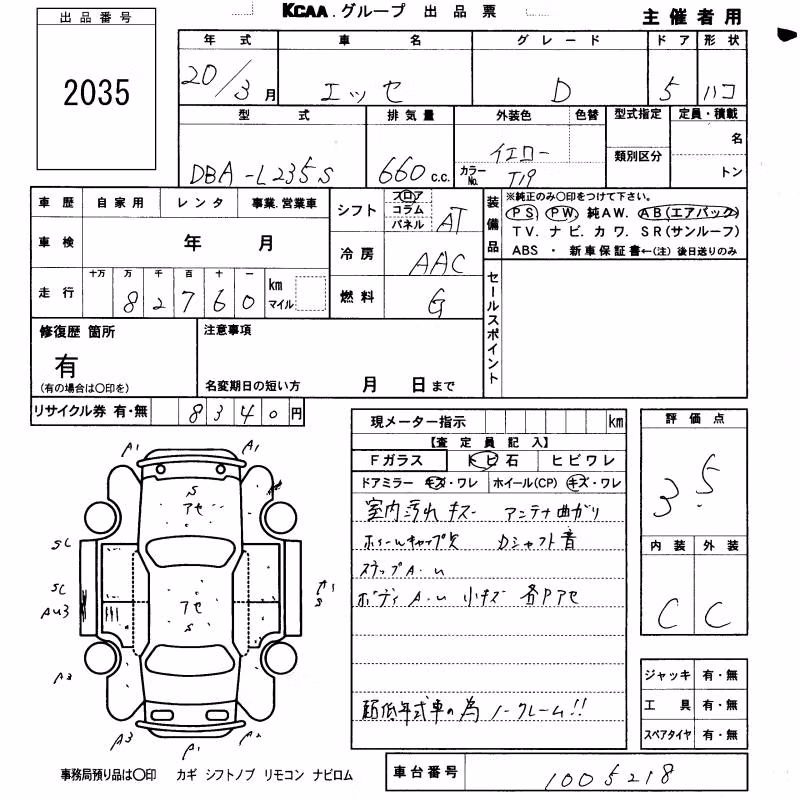 出品番号
2035
KCAA.グループ 出品票
主催者用
年式 車名 グレード ドア 形状
20/3月 エッセ D 5 ハコ
型式 排気量 外装色 色替 型式指定 定員・積載
DBA-L235S 660c.c. イエロー 名
カラーNo. T19 類別区分 トン
車歴 自家用 レンタ 事業.営業車
車検 年 月
走行 十万 万 千 百 十 一 km マイル
82760
シフト フロア コラム パネル AT
冷房 AAC
燃料 G
装備品
※純正のみ○印をつけて下さい.
PS PW 純AW. AB(エアバック)
TV. ナビ. カワ. SR(サンルーフ)
ABS ・ 新車保証書←(注) 後日送りのみ
セールスポイント
修復歴 箇所
有
(有の場合は○印を)
注意事項
名変期日の短い方 月 日まで
リサイクル券 有・無 8340円
現メーター指示 km
【査定員記入】
Fガラス トビ石 ヒビワレ
ドアミラー キズ・ワレ ホイール(CP) キズ・ワレ
室内汚れ キズ アンテナ曲がり
ホイールキャップ欠 Dシャフト音
ステップA.U
ボディ A.U 小キズ 各Pアセ
低年式車の為 ノークレーム!!
評価点
3.5
内装 外装
C C
ジャッキ 有・無
工具 有・無
スペアタイヤ 有・無
A1 A1
S
アセ
SC
SC
AU3
アセ
S
↑1
S
A3
A3 A1 A2
事務局預り品は○印 カギ シフトノブ リモコン ナビロム
車台番号 1005218